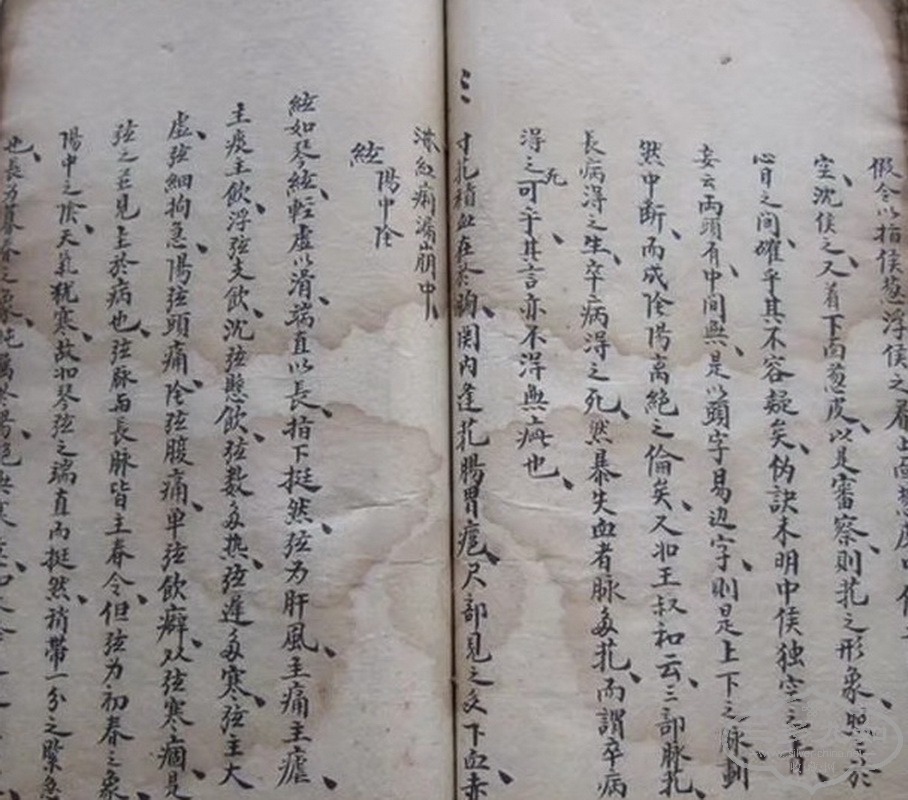 假令以指侯葱浮侯之看上面葱皮中侯
空沈侯之又着下面葱皮以是審察則芤之形象照然於
心目之間確乎其不容疑矣伪訣未明中侯独空之旨
妄云兩頭有中間無是以頭字易边字則是上下之脉劃
然中断而成阴陽离絶之倫矣又如王叔和云三部脉芤
長病得之生卒病得之死然暴失血者脉多芤而謂卒病
得之死可乎其言亦不得無病也
寸芤積血在於胸関内逢芤腸胃癰尺部見之多下血赤
淋红痢漏崩中
絃 陽中阴
絃如琴絃輕虚以滑端直以長指下挺然弦为肝風主痛主瘧
主痰主飲浮弦支飲沈弦懸飲弦数多热弦遲多寒弦主大
虚弦細拘急陽弦頭痛阴弦腹痛单弦飲癖双弦寒痼是
弦之並見主於病也弦脉与長脉皆主春令但弦为初春之象
陽中之陰天氣犹寒故如琴弦之端直而挺然稍帶一分之緊急
也長为暮春之象純属於陽絶無寒